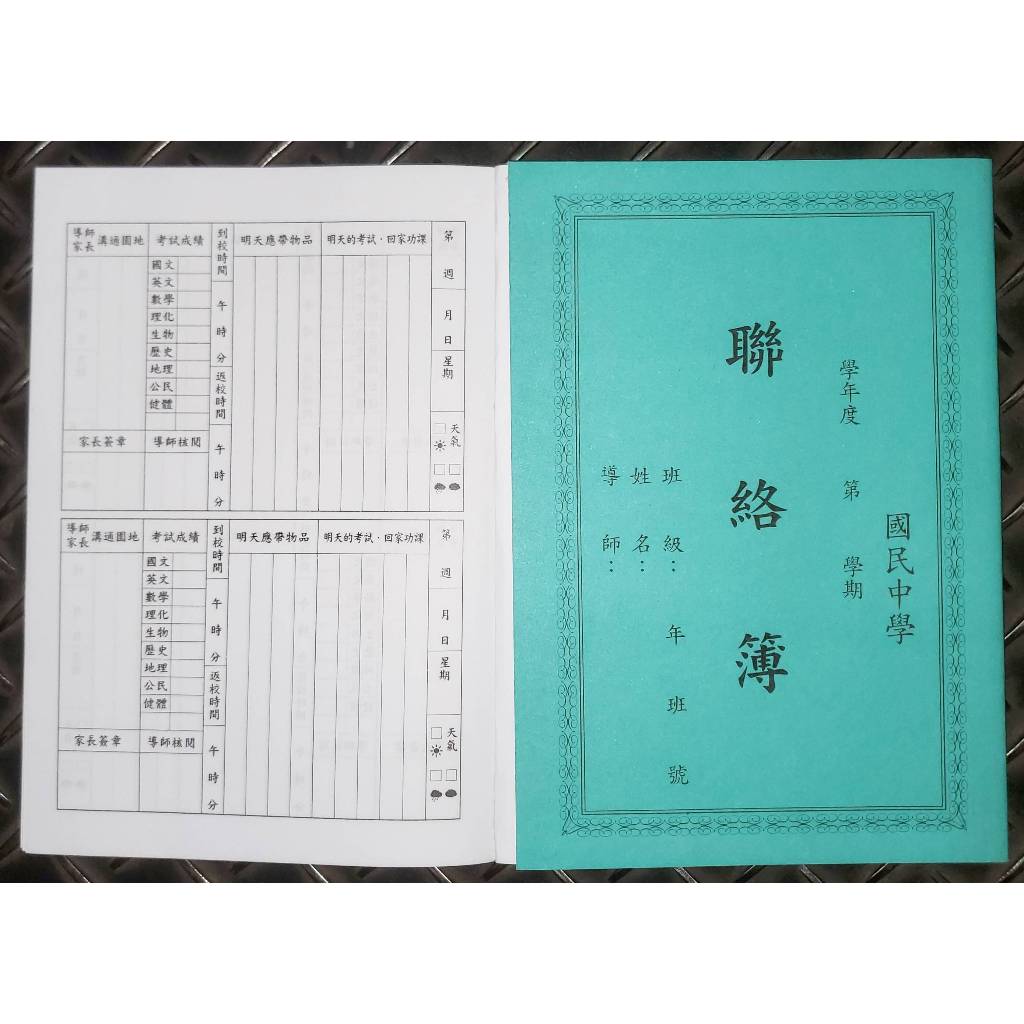 國民中學
學年度 第 學期
聯絡簿
班級： 年 班 號
姓名：
導師：
第 週
月 日
星期
天氣
明天的考試．回家功課
明天應帶物品
到校時間
午 時 分
返校時間
午 時 分
考試成績
國文
英文
數學
理化
生物
歷史
地理
公民
健體
導師核閱
導師家長溝通園地
家長簽章
第 週
月 日
星期
天氣
明天的考試．回家功課
明天應帶物品
到校時間
午 時 分
返校時間
午 時 分
考試成績
國文
英文
數學
理化
生物
歷史
地理
公民
健體
導師核閱
導師家長溝通園地
家長簽章